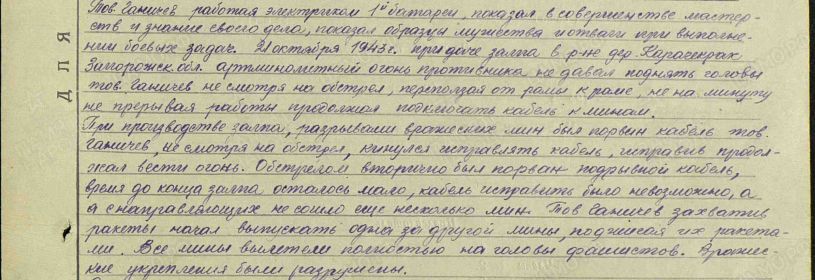 Тов. Ганичев работая электриком 1й батареи, показал в совершенстве мастер-
ств и знание своего дела, показал образцы мужества и отваги при выполне-
нии боевых задач. 21 октября 1943 г. при даче залпа в р-не дер Карачекрак
Запорожск. обл. артминометный огонь противника не давал поднять головы
тов. Ганичев не смотря на обстрел, переползая от рамы к раме, не на минуту
не прерывая работы продолжал подключать кабель к минам.
При производстве залпа, разрывами вражеских мин был порвин кабель тов.
Ганичев не смотря на обстрел, кинулся исправлять кабель, исправив продол-
жал вести огонь. Обстрелом вторично был порван подрывной кабель,
время до конца залпа осталось мало, кабель исправить было невозможно, а
а с направляющих не сошло еще несколько мин. Тов Ганичев захватив
ракеты начал выпускать одна за другой мины, поджигая их ракета-
ми. Все мины вылетели полностью на головы фашистов. Вражес-
кие укрепления были разрушены.
Д Л Я